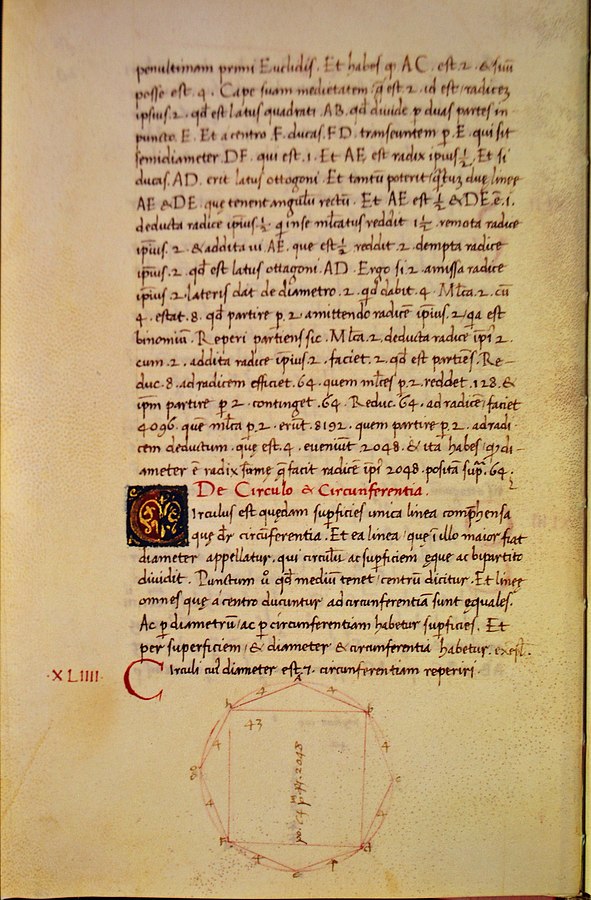 penultimam primi Euclidis. Et habes q̃ A C. est. 2. & suũ
posse est. 4. Cape suam medietatem / q̃ est. 2. id est / radicez
ipsius. 2. qd̃ est latus quadrati. A B. qd̃ divide p duas partes in
puncto. E. Et a centro. F. ducas. F D. transeuntem p. E. qui sit
semidiameter. D F. qui est. 1. Et A E est radix ipius ½. Et si
ducas. A D. erit latus ottogoni. Et tantũ poterit / q̃tuz due linee
A E & D E. que tenent angulũ rectũ. Et A E est ½ & D E ẽ. 1.
deducta radice ipius. ½. q̃ in se mlt̃catus reddit 1 ½. remota radice
ipius. 2. & addita ui A E. que est ½ reddit. 2. dempta radice
ipius. 2. qd̃ est latus ottagoni. A D. Ergo si. 2. amissa radice
ipius. 2. lateris dat de diametro. 2. qd̃ dabit. 4. Ml̃ca. 2. cũ
4. estat. 8. qd̃ partire p. 2. amittendo radicẽ ipius. 2. / qa est
binomiũ. Reperi partiens sic. Ml̃ca. 2. deducta radice ipi9 2.
cum. 2. addita radice ipius. 2. faciet. 2. qd̃ est partiẽs. Re-
duc. 8. ad radicem efficiet. 64. quem ml̃ces p. 2. reddet. 128. &
ipm partire p. 2. continget. 64. Reduc. 64. ad radicẽ / faciet
4096. quẽ ml̃ca p. 2. erũt. 8192. quem partire p. 2. ad radi-
cem deductum. que est. 4. eveniũt 2048. & ita habes / q̃ di-
ameter ẽ radix summe q̃ facit radicẽ ipi9 2048. posita sup̃. 64.
De Circulo & Circunferentia.
Circulus est quędam supficies unica linea comp̃hensa
quę dr̃ circũferentia. Et ea linea / que ĩ illo maior fiat
diameter appellatur. qui circulũ ac supficiem ęque ac bipartito
dividit. Punctum ũ qd̃ mediũ tenet / centrũ dicitur. Et lineę
omnes quę a centro ducuntur ad circũferentiã sunt equales.
Ac p diametrũ / ac p circunferentiam habetur supficies. Et
per superficiem / & diameter & circũferentia habetur. exẽpl.
·XLIIII· Circuli cui9 diameter est. 7. circunferentiam reperiri.
A
4 4
h b
43
4 4
c
4 4
d
4 4
e
po. 4 p̃. R. 2048